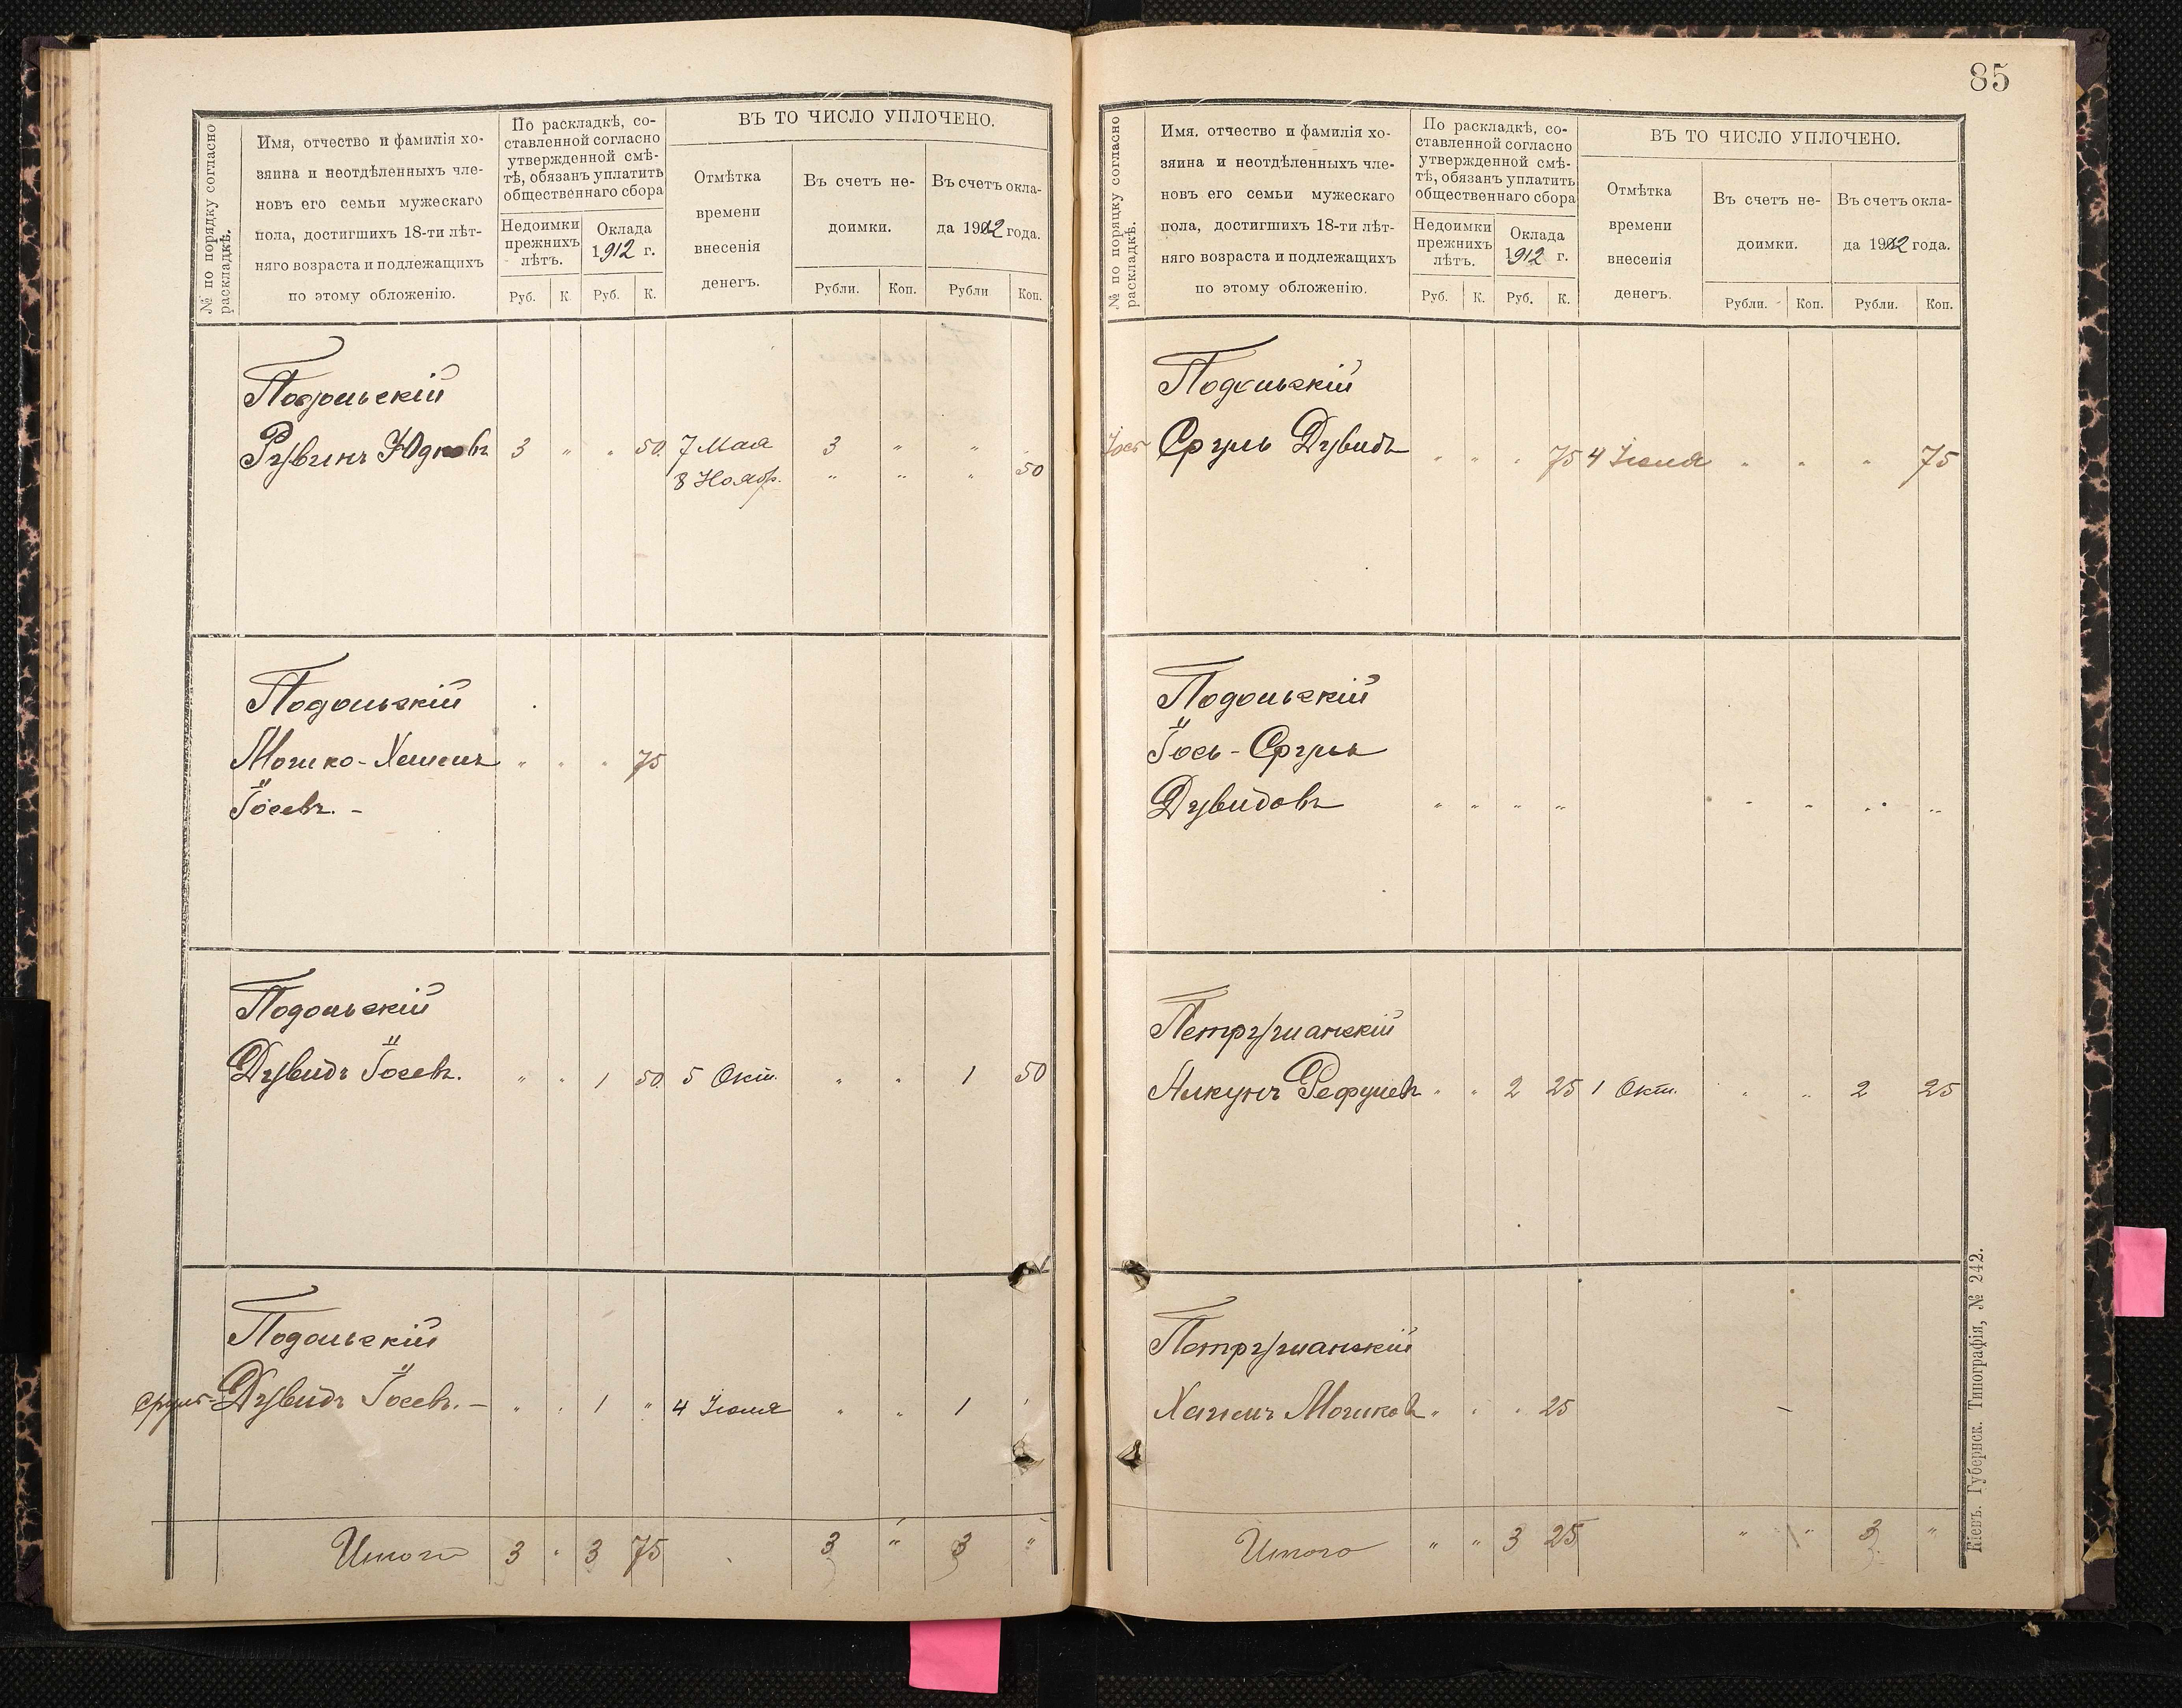 85
№ по порядку согласно раскладкѣ.
Имя, отчество и фамилія хо-
зяина и неотдѣленныхъ чле-
новъ его семьи мужескаго
пола, достигшихъ 18-ти лѣт-
няго возраста и подлежащихъ
по этому обложенію.
По раскладкѣ, со-
ставленной согласно
утвержденной смѣ-
тѣ, обязанъ уплатить
общественнаго сбора
Недоимки
прежнихъ
лѣтъ.
Оклада
1912 г.
Руб. К. Руб. К.
ВЪ ТО ЧИСЛО УПЛОЧЕНО.
Отмѣтка
времени
внесенія
денегъ.
Въ счетъ не-
доимки.
Рубли. Коп.
Въ счетъ окла-
да 1912 года.
Рубли Коп.
Подольскій
Рувинъ Юдковъ 3 " " 50 7 Мая 3 " " "
8 Нояб. " " " 50
Подольскій
Мошко-Хаимъ " " " 75
Іосевъ. -
Подольскій
Дувидъ Іосевъ. " " 1 50 5 Окт. " " 1 50
Подольскій
Сруль-Дувидъ Іосевъ. - " " 1 " 4 Іюля " " 1 "
Итого 3 " 3 75 3 " 3 "
№ по порядку согласно раскладкѣ.
Имя. отчество и фамилія хо-
зяина и неотдѣленныхъ чле-
новъ его семьи мужескаго
пола, достигшихъ 18-ти лѣт-
няго возраста и подлежащихъ
по этому обложенію.
По раскладкѣ, со-
ставленной согласно
утвержденной смѣ-
тѣ, обязанъ уплатить
общественнаго сбора
Недоимки
прежнихъ
лѣтъ.
Оклада
1912 г.
Руб. К. Руб. К.
ВЪ ТО ЧИСЛО УПЛОЧЕНО.
Отмѣтка
времени
внесенія
денегъ.
Въ счетъ не-
доимки.
Рубли. Коп.
Въ счетъ окла-
да 1912 года.
Рубли. Коп.
Подольскій
Іось Сруль Дувидъ " " " 75 4 Іюля " " " 75
Подольскій
Іось-Сруль
Дувидовъ " " " " " " " "
Петрушанскій
Алкунъ Рефулевъ " " 2 25 1 Окт. " " 2 25
Петрушанскій
Хаимъ Мошковъ " " " 25
Итого " " 3 25 " " 3 "
Кіевъ. Губернск. Типографія, № 242.